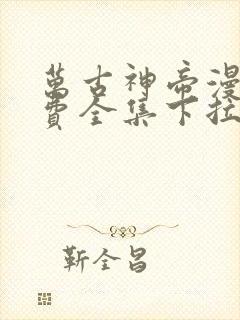 萬古神帝漫
費全集下拉
靳全昌